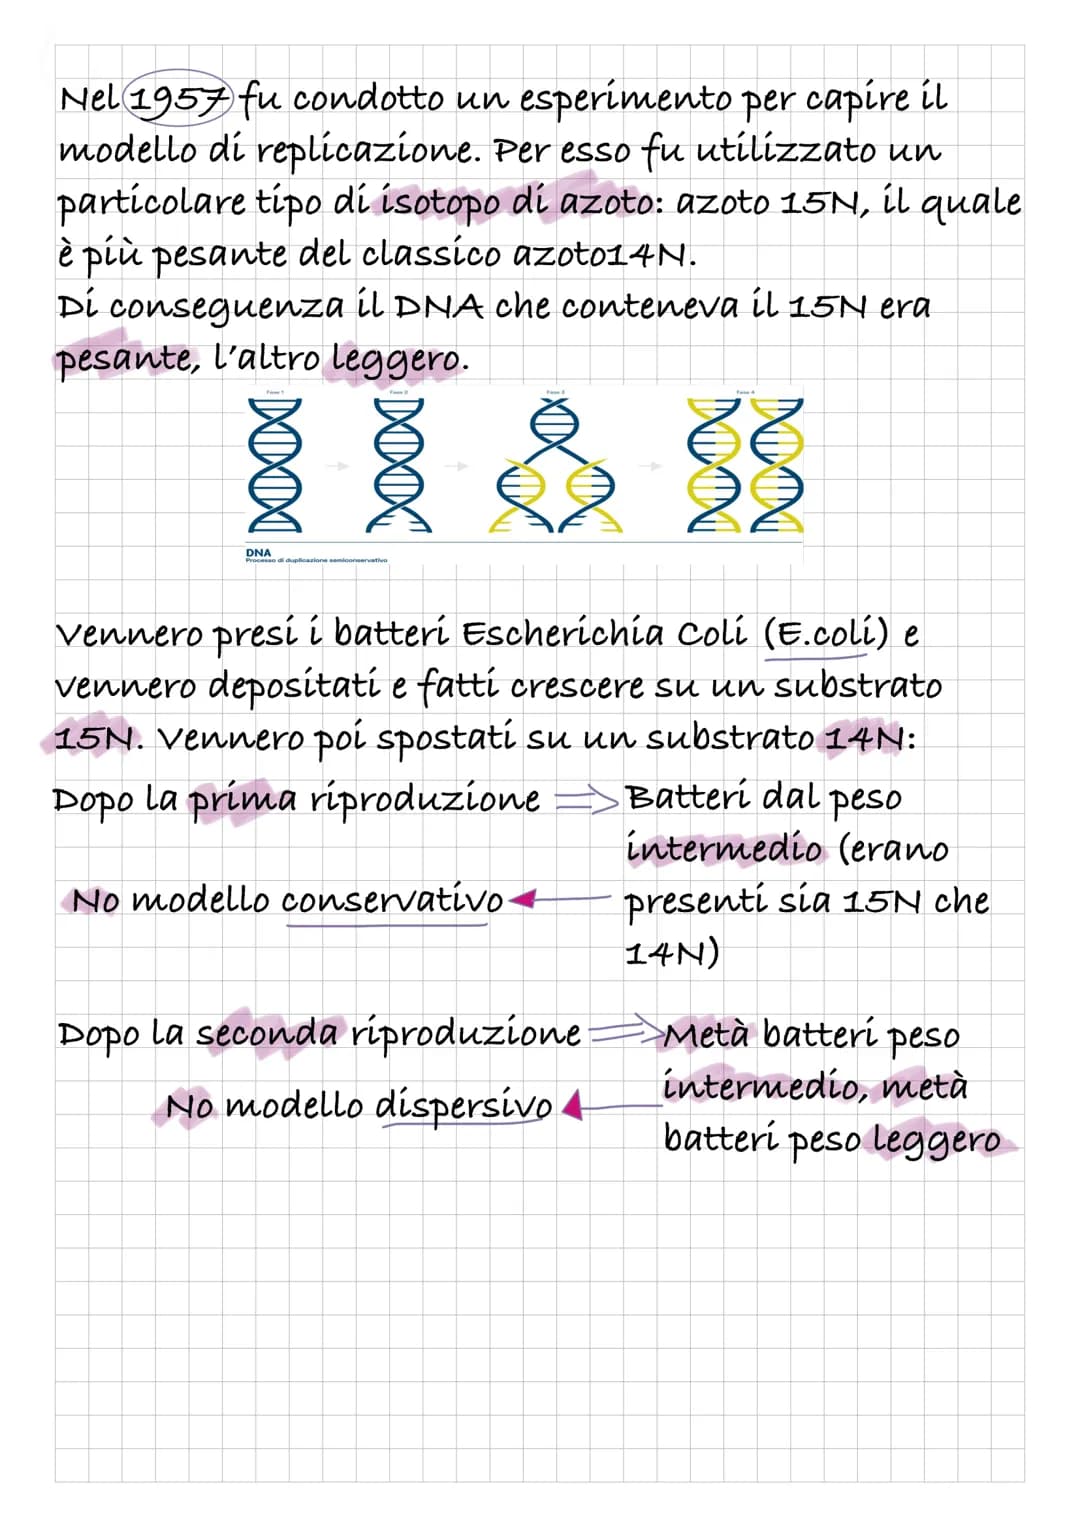 Nel 1957 fu condotto un esperimento per capire il
modello di replicazione. Per esso fu utilizzato un
particolare tipo di isotopo di azoto: azoto 15N, il quale
è più pesante del classico azoto14N.
Di conseguenza il DNA che conteneva il 15N era
pesante, l'altro leggero.
Fase 1 Fase 2 Fase 3 Fase 4
DNA
Processo di duplicazione semiconservativo
Vennero presi i batteri Escherichia Coli (E.coli) e
vennero depositati e fatti crescere su un substrato
15N. Vennero poi spostati su un substrato 14N:
Dopo la prima riproduzione ⇒ Batteri dal peso
intermedio (erano
No modello conservativo ← presenti sia 15N che
14N)
Dopo la seconda riproduzione ⇒ Metà batteri peso
intermedio, metà
No modello dispersivo ←
batteri peso leggero